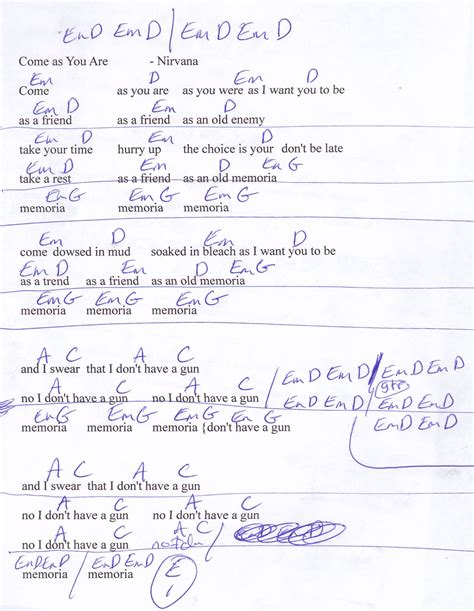 Em D Em D / Em D Em D
Come as You Are - Nirvana
Em D Em D
Come as you are as you were as I want you to be
Em D Em D
as a friend as a friend as an old enemy
Em D Em D
take your time hurry up the choice is your don't be late
Em D Em D Em G
take a rest as a friend as an old memoria
Em G Em G Em G
memoria memoria memoria
Em D Em D
come dowsed in mud soaked in bleach as I want you to be
Em D Em D Em G
as a trend as a friend as an old memoria
Em G Em G Em G
memoria memoria memoria
A C
and I swear that I don't have a gun
A C A C / Em D Em D / Em D Em D
no I don't have a gun no I don't have a gun
gtr
Em D Em D / Em D Em D
Em G Em G Em G Em G Em D Em D
memoria memoria memoria {don't have a gun
A C
and I swear that I don't have a gun
A C A C
no I don't have a gun no I don't have a gun
A C A C
no I don't have a gun /
Em D Em D / Em D Em D E
memoria memoria 1